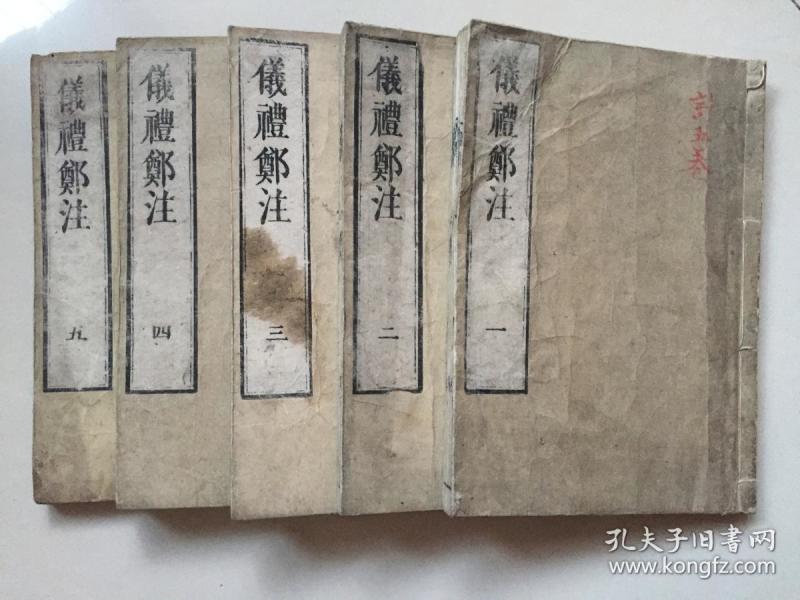 儀禮鄭注
五
儀禮鄭注
四
儀禮鄭注
三
儀禮鄭注
二
儀禮鄭注
一
孔夫子旧書网
www.kongfz.com